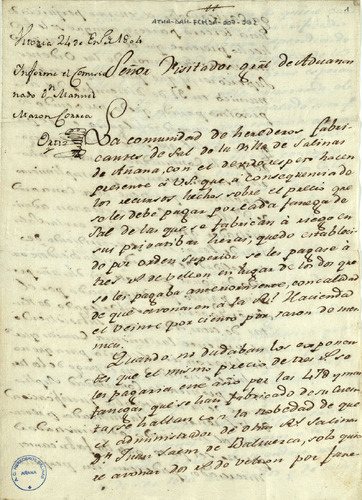 ATHA-DAH-FCHSA-003-303
1
Vitoria 24 de En.o de 1804
Informe el Comisio
nado Dn. Manuel
Maron Correa
Ortiz
Señor Visitador gral. de Aduanas
La comunidad de herederos fabri
cantes de Sal de la Villa de Salinas
de Añana, con el devido respeto hacen
presente a V.S. que a consequencia de
los recursos hechos sobre el precio que
se les debe pagar por cada fanega de
Sal de las que se fabrican a riego en
sus privativas heras, quedo establec
do por orden superior se les pagase a
tres rs. de vellon en lugar de los dos que
se les pagaba anteriormente, con calidad
de que avonasen a la Rl. Hacienda
el veinte por ciento por razon de mer
mas.
Quando no dudaban los exponen
tes que el mismo precio de tres rs. se
les pagaria este año por las 478 y mas
fanegas que se han fabricado de su cuenta
se hallan con la novedad de que
el administrador de dhas. Rs. Salinas
Dn. Juan Saenz de Balluerca, solo quie
re avonar dos rs. de vellon por fane
AÑANA